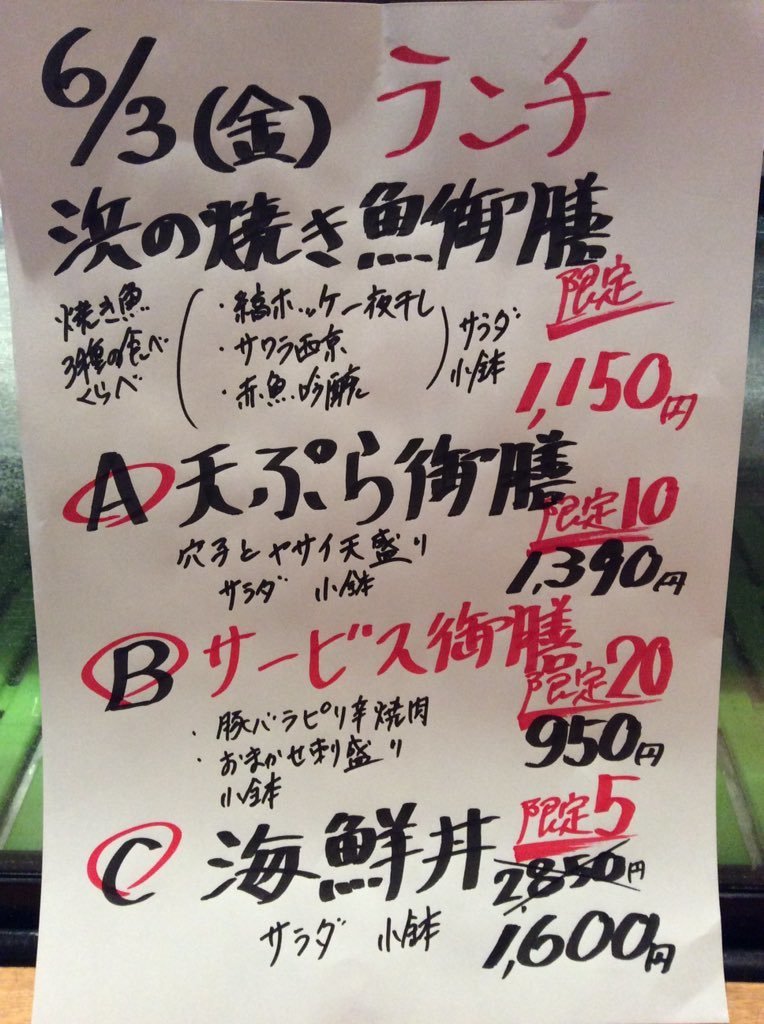 6/3(金) ランチ
浜の焼き魚御膳
限定
焼き魚
3種の食べ
くらべ
・縞ホッケ一夜干し
・サワラ西京
・赤魚吟醸
サラダ
小鉢
1,150円
A 天ぷら御膳
限定10
穴子とヤサイ天盛り
サラダ 小鉢
1,390円
B サービス御膳
限定20
・豚バラピリ辛焼肉
・おまかせ刺盛り
小鉢
950円
C 海鮮丼
限定5
2,850円
サラダ 小鉢
1,600円